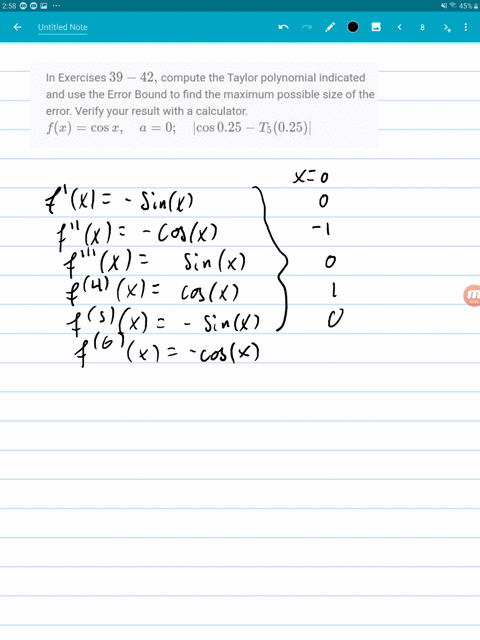 2:58
45%
Untitled Note
8
In Exercises 39 – 42, compute the Taylor polynomial indicated
and use the Error Bound to find the maximum possible size of the
error. Verify your result with a calculator.
f(x) = cos x, a = 0; |cos 0.25 − T₅(0.25)|
x=0
f'(x) = - Sin(x) 0
f''(x) = - Cos(x) -1
f'''(x) = Sin(x) 0
f^(4)(x) = cos(x) 1
f^(5)(x) = - Sin(x) 0
f^(6)(x) = - cos(x)